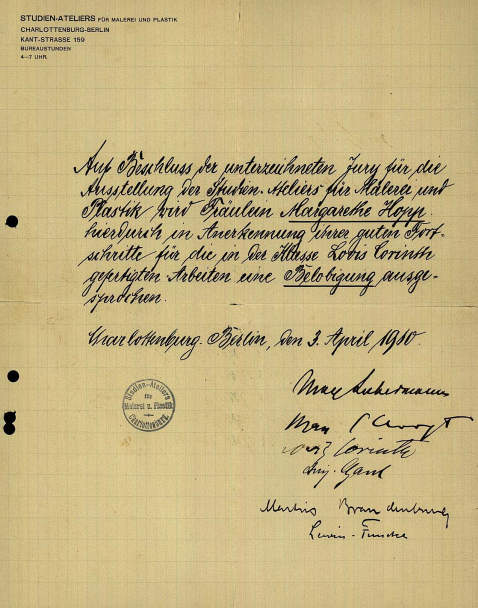 STUDIEN-ATELIERS FÜR MALEREI UND PLASTIK
CHARLOTTENBURG-BERLIN
KANT-STRASSE 159
BUREAUSTUNDEN
4-7 UHR.
Auf Beschluss der unterzeichneten Jury für die
Ausstellung der Studien-Ateliers für Malerei und
Plastik wird Fräulein Margarethe Hopp
hierdurch in Anerkennung ihrer guten Fort-
schritte für die in der Klasse Lovis Corinth
gefertigten Arbeiten eine Belobigung ausge-
sprochen.
Charlottenburg-Berlin, den 3. April 1910.
Studien-Ateliers
für
Malerei u. Plastik
Charlottenburg.
Max Liebermann
Max
Corinth
Aug. Gaul
Martin Brandenburg
Lewin-Funcke